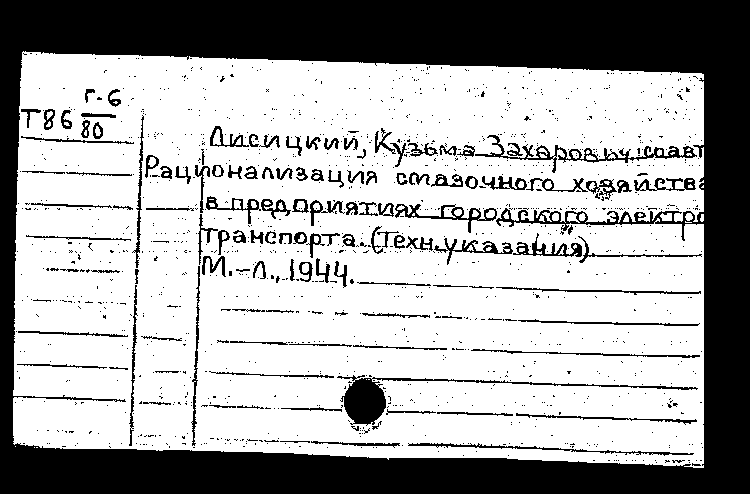 Т86 г-6
80
Лисицкий, Кузьма Захарович. соавт
Рационализация смазочного хозяйства
в предприятиях городского электро
транспорта. (Техн. указания).
М.-Л., 1944.